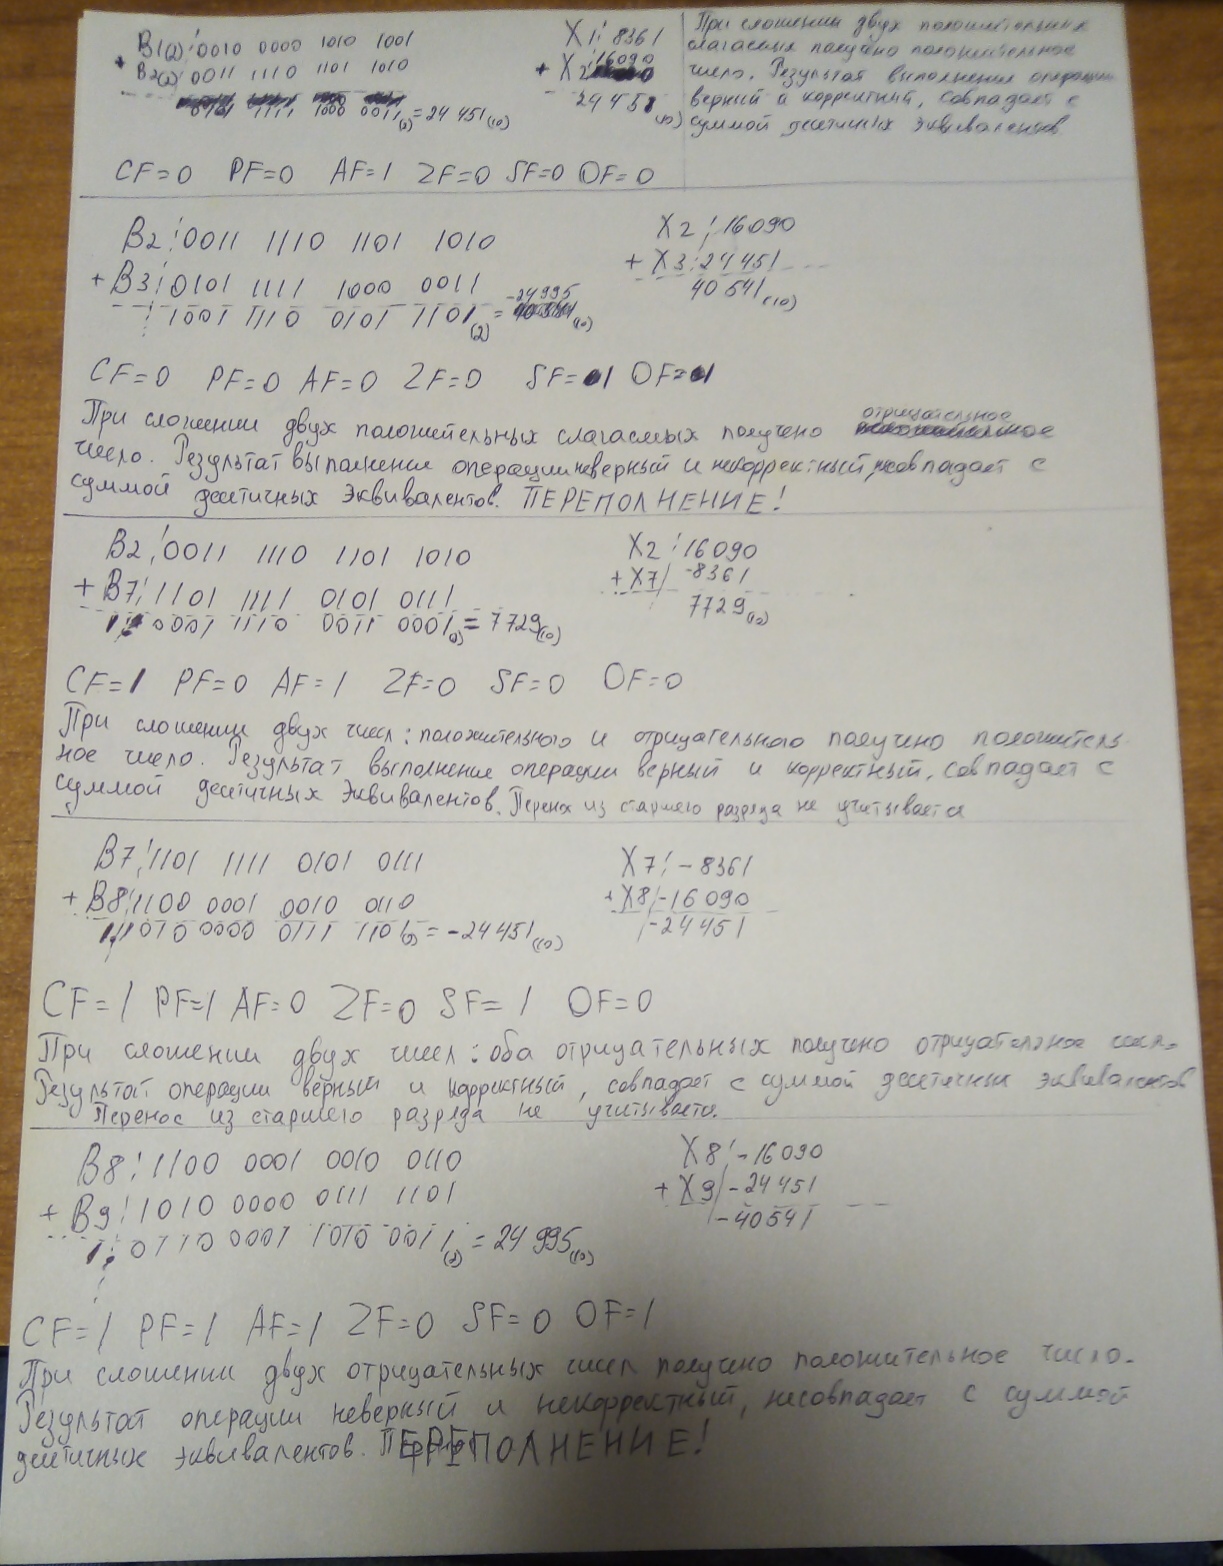 B1(2) 0010 0000 1010 1001
+ B2(2) 0011 1110 1101 1010
0101 1111 1000 0011(2) = 24 451(10)
X1 8361
+ X2 16090
24451(10)
При сложении двух положительных
слагаемых получено положительное
число. Результат выполнения операции
верный и корректный, совпадает с
суммой десятичных эквивалентов
CF=0 PF=0 AF=1 ZF=0 SF=0 OF=0
B2 0011 1110 1101 1010
+ B3 0101 1111 1000 0011
1001 1110 0101 1101(2) = -24995(10)
X2 16090
+ X3 24451
40541(10)
CF=0 PF=0 AF=0 ZF=0 SF=1 OF=1
При сложении двух положительных слагаемых получено отрицательное
число. Результат выполнения операции неверный и некорректный, несовпадает с
суммой десятичных эквивалентов. ПЕРЕПОЛНЕНИЕ!
B2 0011 1110 1101 1010
+ B7 1101 1111 0101 0111
1 0001 1110 0011 0001(2) = 7729(10)
X2 16090
+ X7 -8361
7729(10)
CF=1 PF=0 AF=1 ZF=0 SF=0 OF=0
При сложении двух чисел: положительного и отрицательного получено положитель-
ное число. Результат выполнения операции верный и корректный, совпадает с
суммой десятичных эквивалентов. Перенос из старшего разряда не учитывается
B7 1101 1111 0101 0111
+ B8 1100 0001 0010 0110
1 1010 0000 0111 1101(2) = -24451(10)
X7 -8361
+ X8 -16090
-24451
CF=1 PF=1 AF=0 ZF=0 SF=1 OF=0
При сложении двух чисел: оба отрицательных получено отрицательное число.
Результат операции верный и корректный, совпадает с суммой десятичных эквивалентов
Перенос из старшего разряда не учитывается.
B8 1100 0001 0010 0110
+ B9 1010 0000 0111 1101
1 0110 0001 1010 0011(2) = 24 995(10)
X8 -16090
+ X9 -24451
-40541
CF=1 PF=1 AF=1 ZF=0 SF=0 OF=1
При сложении двух отрицательных чисел получено положительное число.
Результат операции неверный и некорректный, несовпадает с суммой
десятичных эквивалентов. ПЕРЕПОЛНЕНИЕ!